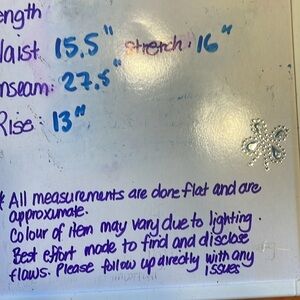 ength
aist 15.5" stretch: 16"
nseam: 27.5"
Rise: 13"
* All measurements are done flat and are
approximate.
Colour of item may vary due to lighting.
Best effort made to find and disclose
flaws. Please follow up directly with any
issues